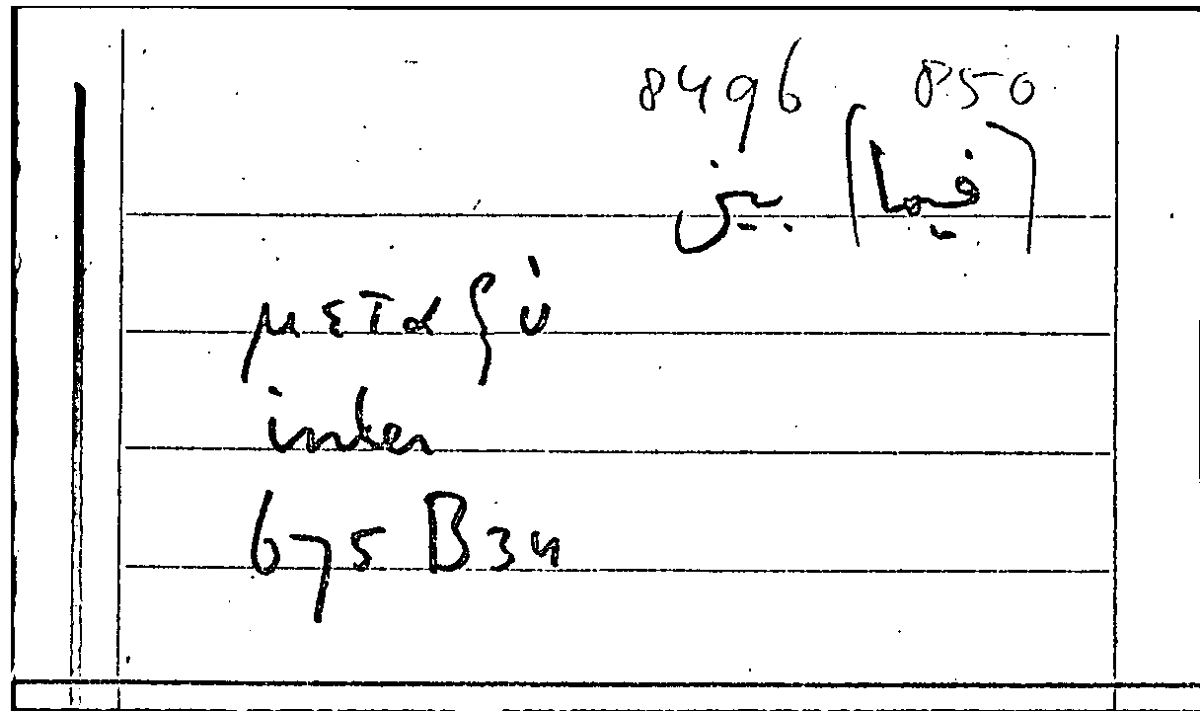 8496 850
(فيما) بين
μεταξύ
inter
675 B 34